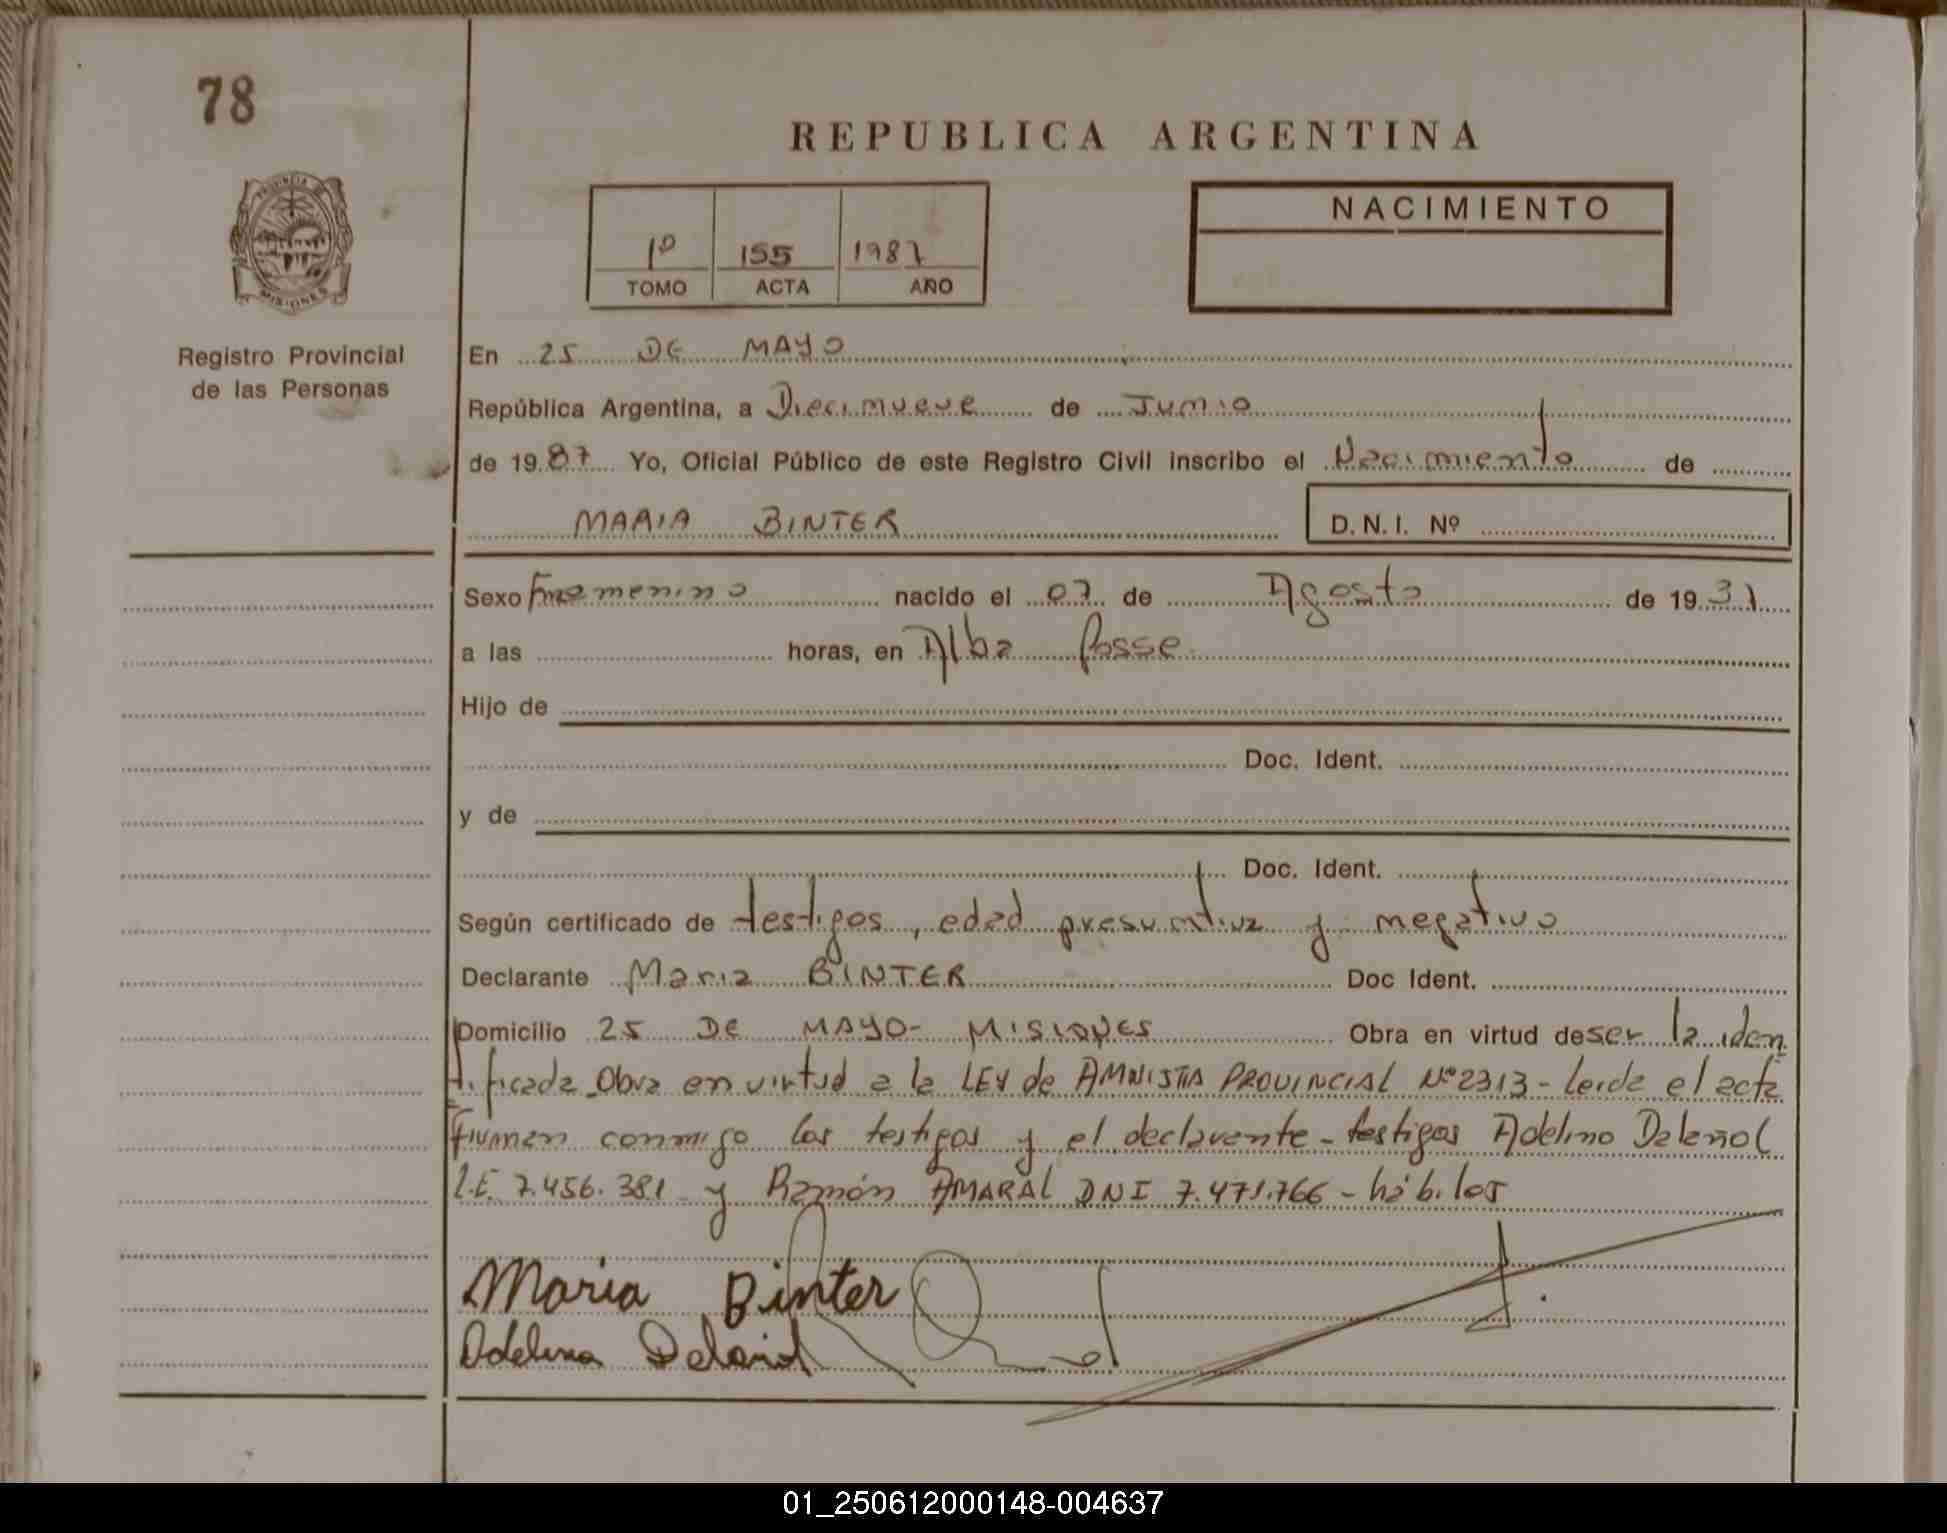 78
REPUBLICA ARGENTINA
PROVINCIA DE
MISIONES
1º 155 1987
TOMO ACTA AÑO
NACIMIENTO
Registro Provincial
de las Personas
En 25 DE MAYO
República Argentina, a Diecinueve de Junio
de 1987 Yo, Oficial Público de este Registro Civil inscribo el Nacimiento de
MARIA BINTER D.N.I. Nº
Sexo Femenino nacido el 07 de Agosto de 1931
a las horas, en Alba Posse.
Hijo de
Doc. Ident.
y de
Doc. Ident.
Según certificado de testigos, edad presuntiva y negativo
Declarante Maria BINTER Doc Ident.
Domicilio 25 DE MAYO- MISIONES Obra en virtud de ser la iden
tificada Obra en virtud a la LEY de AMNISTIA PROVINCIAL Nº 2313 - Leida el acta
firman conmigo los testigos y el declarante - testigos Adelino Delañol
L.E. 7.456.381 y Ramón AMARAL DNI 7.471.766 - hábiles
Maria Binter
01_250612000148-004637